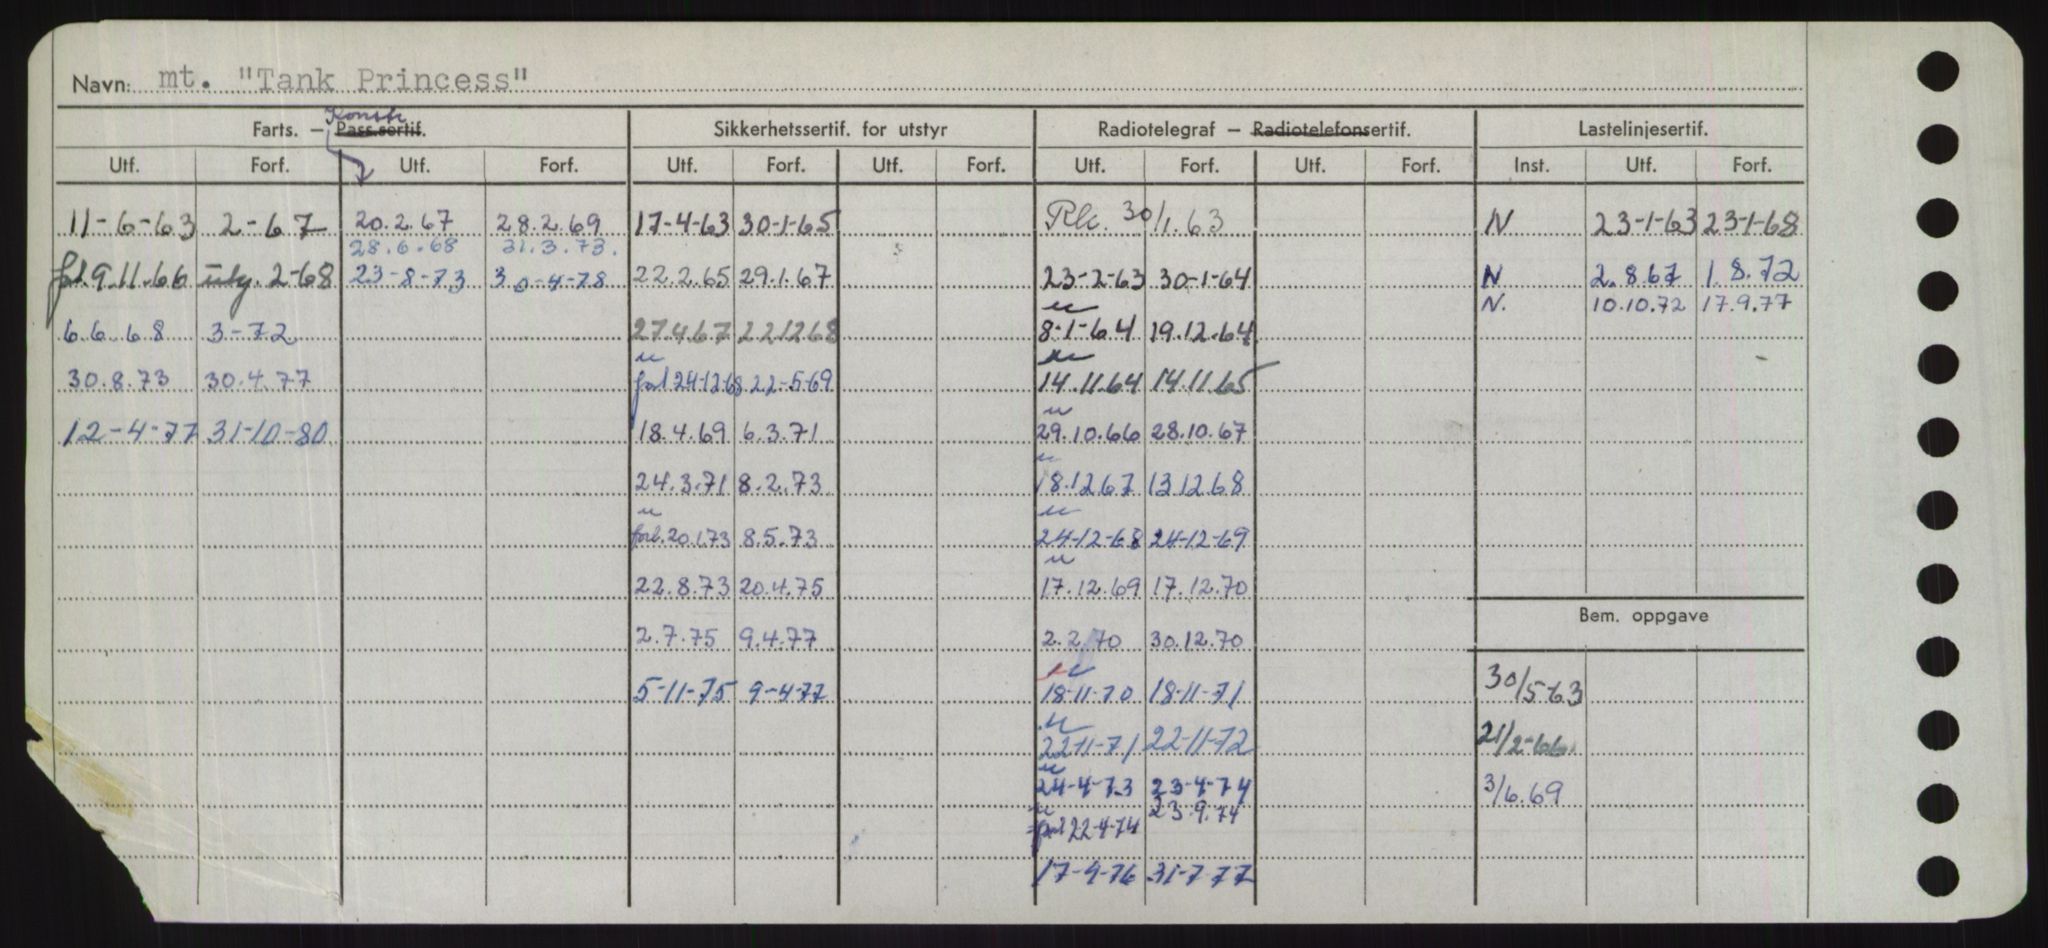 Navn: mt. "Tank Princess"
Konstr
Farts. – Pass.sertif. Sikkerhetssertif. for utstyr Radiotelegraf – Radiotelefonsertif. Lastelinjesertif.
Utf. Forf. Utf. Forf. Utf. Forf. Utf. Forf. Utf. Forf. Utf. Forf. Inst. Utf. Forf.
11-6-63 2-67 20.2.67 28.2.69 17-4-63 30-1-65 Rk. 30/1.63 N 23-1-63 23-1-68
28.6.68 31.3.73.
9.11.66 2-68 23-8-73 30-4-78 22.2.65 29.1.67 23-2-63 30-1-64 N 2.8.67 1.8.72
u N. 10.10.72 17.9.77
6.6.68 3-72 27.4.67 22.12.68 8-1-64 19.12.64
u u
30.8.73 30.4.77 forl 24-12-68 22-5-69 14.11.64 14.11.65
u
12-4-77 31-10-80 18.4.69 6.3.71 29.10.66 28.10.67
u
24.3.71 8.2.73 18.12.67 13.12.68
u u
forl. 20.1.73 8.5.73 24-12-68 24-12-69
u
22.8.73 20.4.75 17.12.69 17.12.70
Bem. oppgave
2.7.75 9.4.77 2.2.70 30.12.70
u
5-11-75 9-4-77 18-11-70 18-11-71 30/5-63
u
22-11-71 22-11-72 21/2-66
u
24-4-73 23-4-74 3/6.69
u
forl 22-4-74 23.9.74
17-9-76 31-7-77